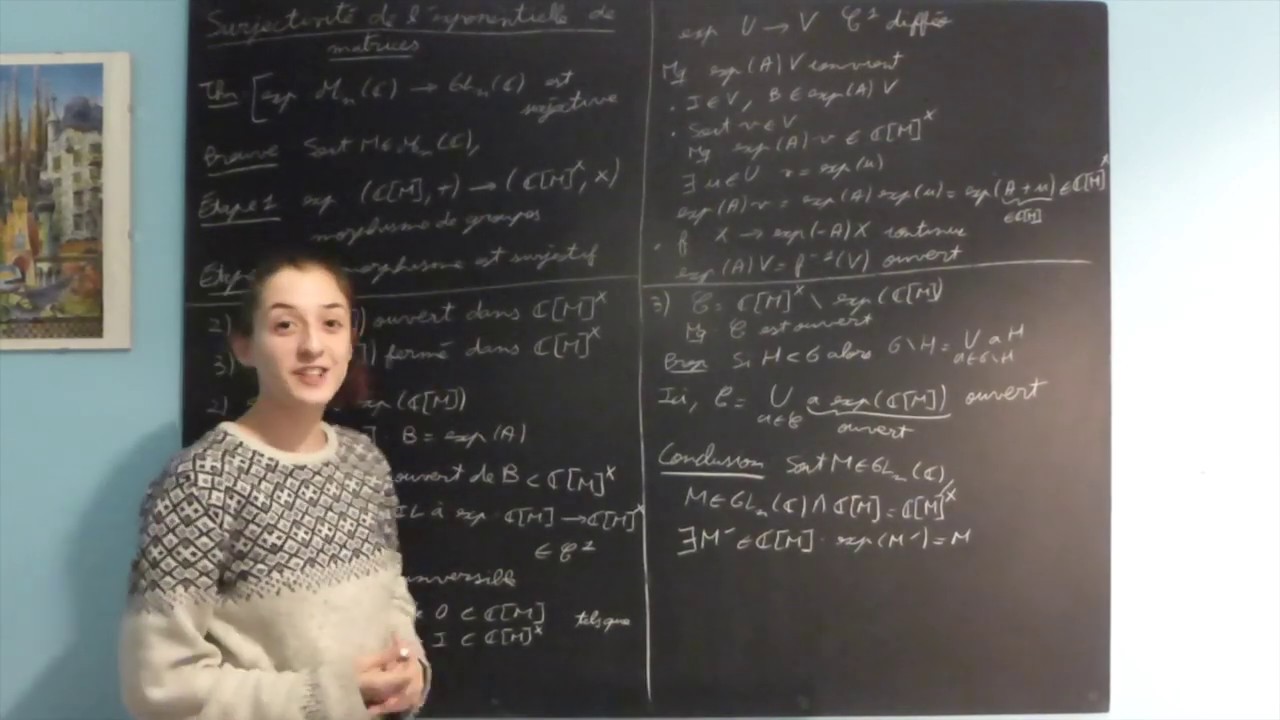 Surjectivité de l'exponentielle de
matrices
Thm [ exp M_n(ℂ) → GL_n(ℂ) est
surjective
Preuve Soit M ∈ M_n(ℂ),
Étape 1 exp (ℂ[M], +) → (ℂ[M]^×, ×)
morphisme de groupes
morphisme est surjectif
2) ouvert dans ℂ[M]^×
3) fermé dans ℂ[M]^×
2) exp(ℂ[M])
B = exp(A)
ouvert de B ⊂ ℂ[M]^×
à exp ℂ[M] → ℂ[M]^×
∈ C^1
inversible
0 ⊂ ℂ[M] tels que
I ⊂ ℂ[M]^×
exp U → V C^1 difféo
Mq exp(A)V convient
• I ∈ V, B ∈ exp(A)V
• Soit v ∈ V
Mq exp(A)·v ∈ ℂ[M]^×
∃ u ∈ U v = exp(u)
exp(A)·v = exp(A) exp(u) = exp(A + u) ∈ ℂ[M]^×
∈ ℂ[M]
• f X → exp(-A)X continue
exp(A)V = f^{-1}(V) ouvert
3) C = ℂ[M]^× \ exp(ℂ[M])
Mq C est ouvert
Prop Si H < G alors G \ H = ∪ aH
a ∈ G\H
Ici, C = ∪ a exp(ℂ[M]) ouvert
a ∈ C ouvert
Conclusion Soit M ∈ GL_n(ℂ),
M ∈ GL_n(ℂ) ∩ ℂ[M] = ℂ[M]^×
∃ M' ∈ ℂ[M] · exp(M') = M